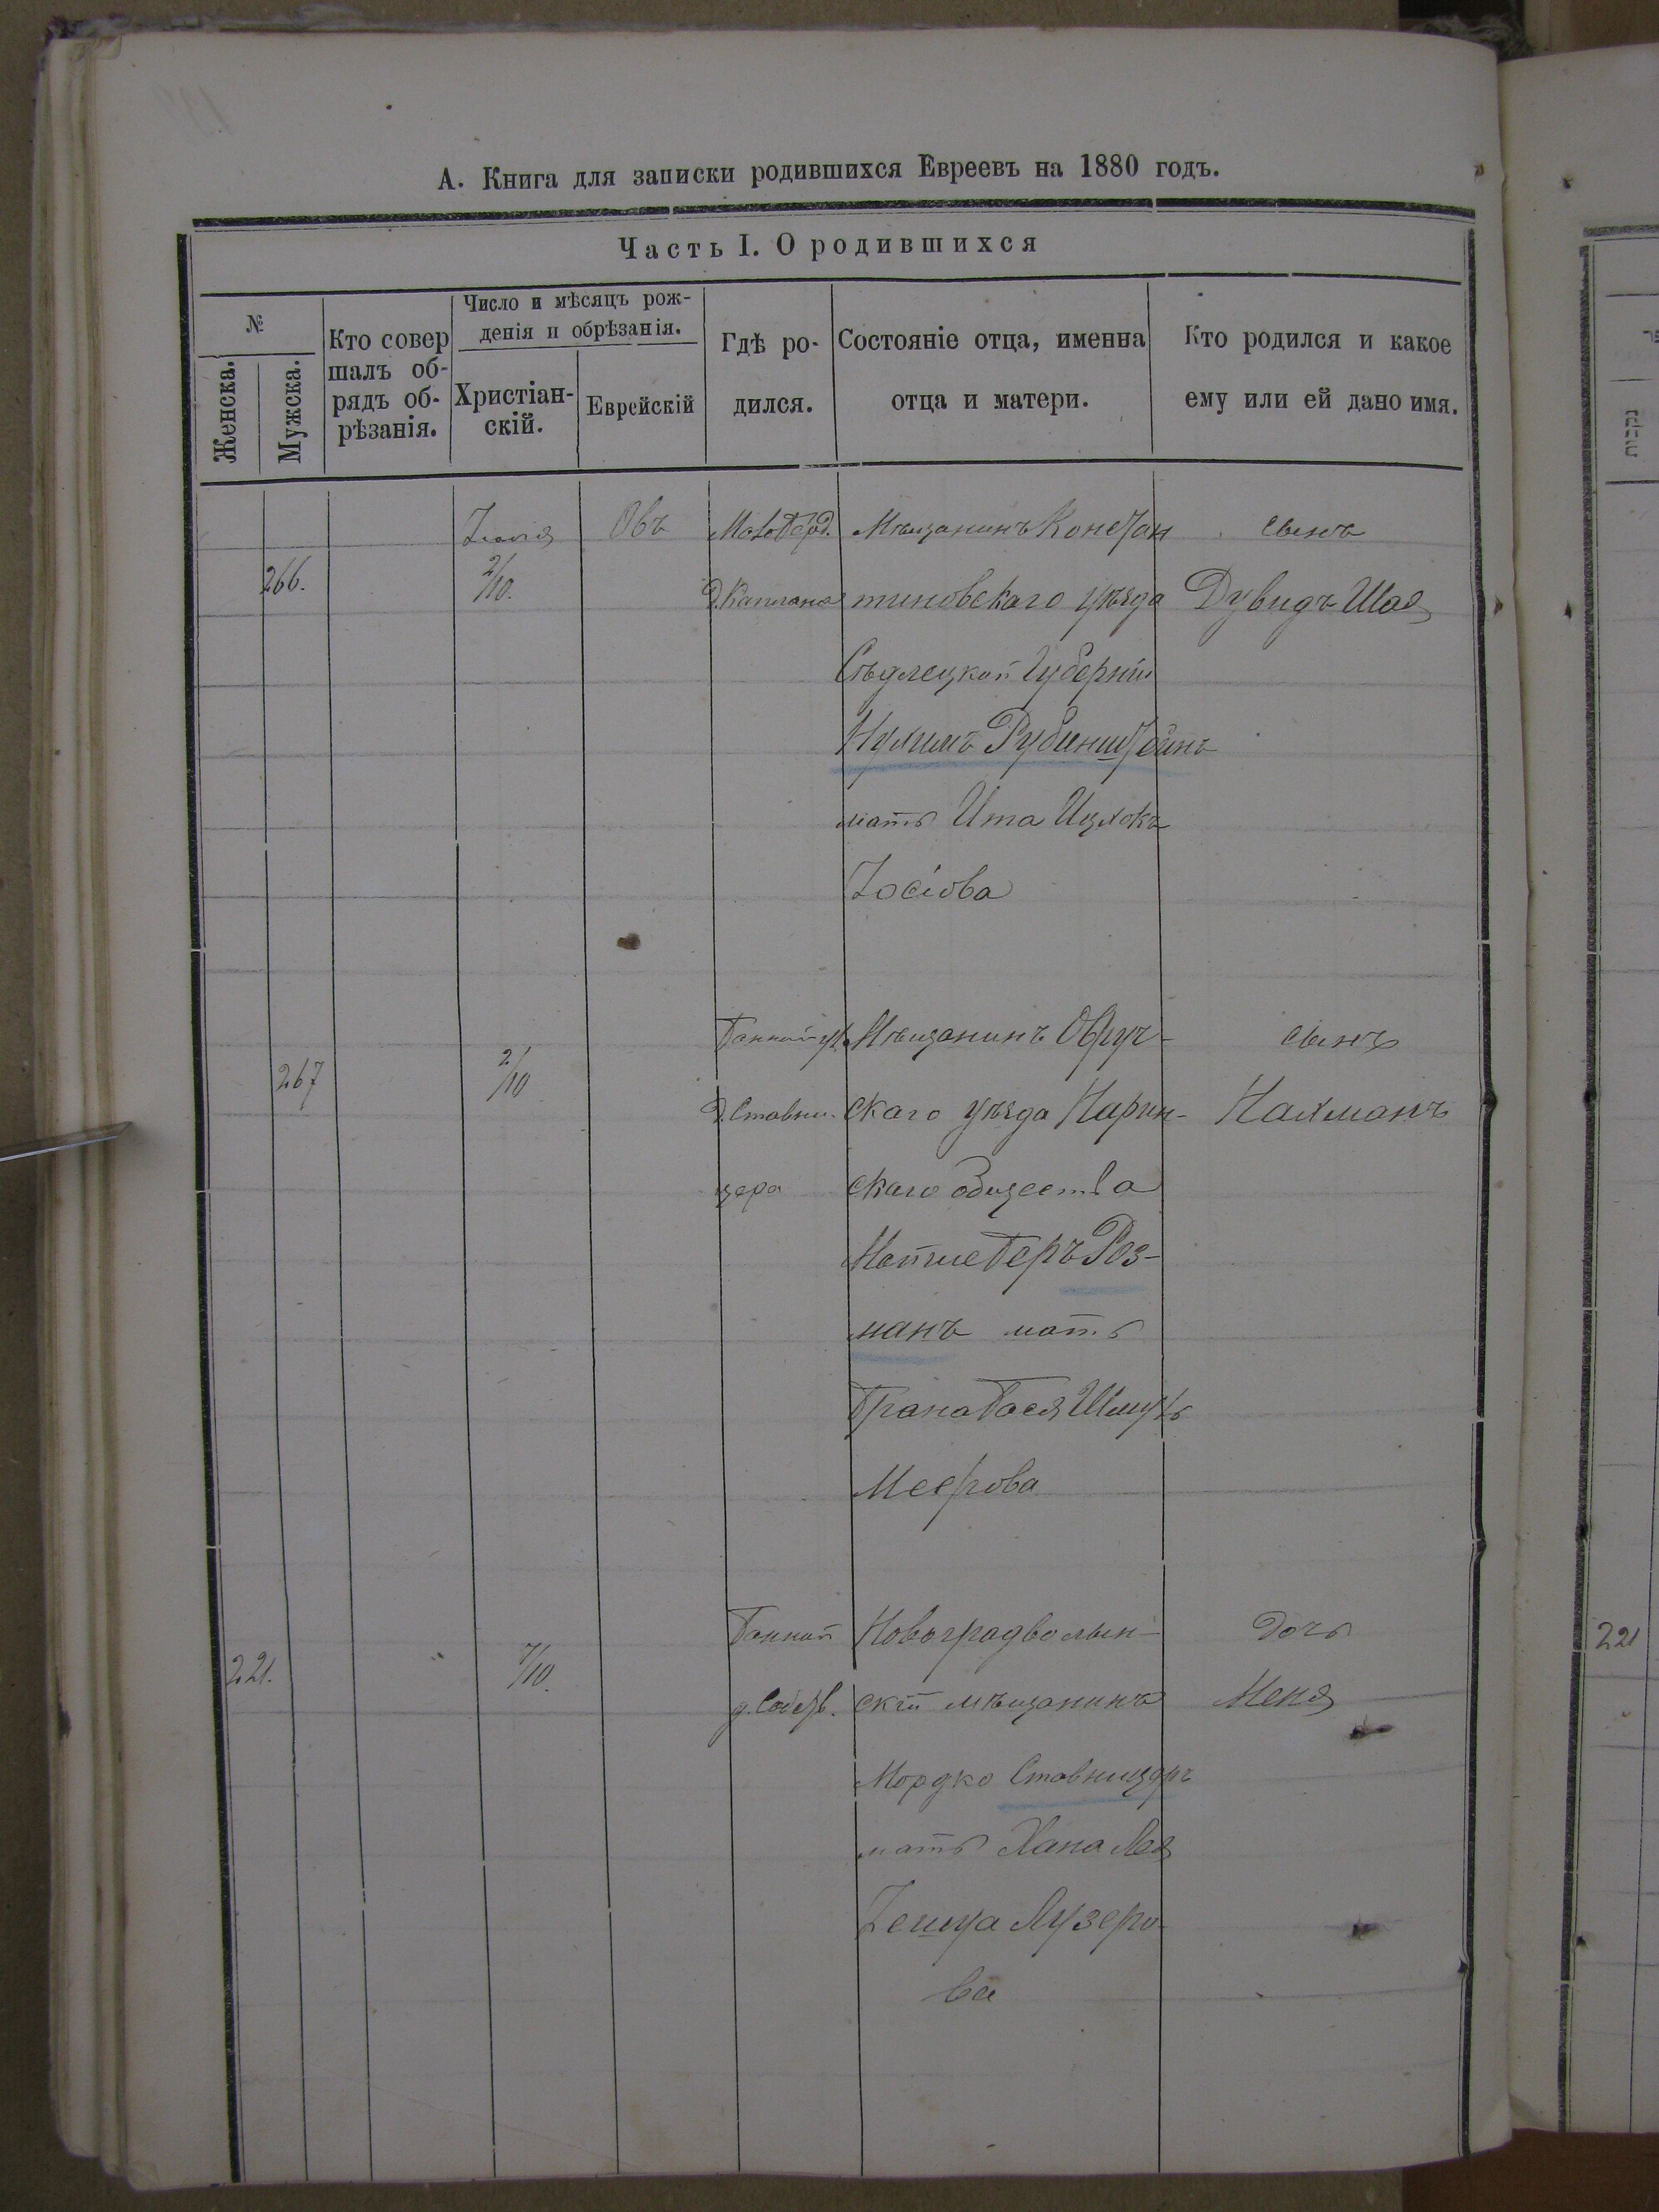 А. Книга для записки родившихся Евреевъ на 1880 годъ.
Часть I. О родившихся
№
Женска.
Мужска.
Кто совер
шалъ об-
рядъ об-
рѣзанія.
Число и мѣсяцъ рож-
денія и обрѣзанія.
Христіан-
скій.
Еврейскій
Гдѣ ро-
дился.
Состояніе отца, именна
отца и матери.
Кто родился и какое
ему или ей дано имя.
266.
Іюля
2/10.
Овъ
д. Каплана
Мѣщанинъ Констан
тиновскаго уѣзда
Сѣдлецкой Губерніи
Рубинштейнъ
мать Ита Ицхокъ
Іосіова
сынъ
Дувидъ Шая
267
2/10
д. Ставни-
цера
Мѣщанинъ Овруч-
скаго уѣзда Нарин-
скаго общества
Роз-
манъ мать
Меерова
сынъ
Нахманъ
221.
7/10.
Новоградволын-
скій мѣщанинъ
Мордко Ставницеръ
мать Хана Лея
Лузеро-
ва
дочь
Меня
221